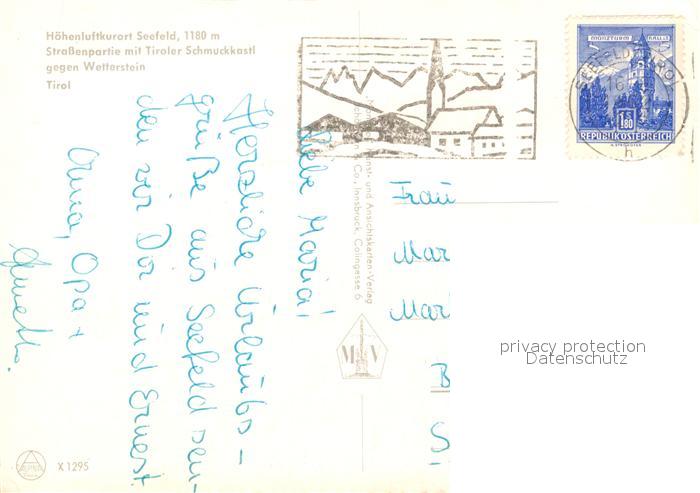 Höhenluftkurort Seefeld, 1180 m
Straßenpartie mit Tiroler Schmuckkastl
gegen Wetterstein
Tirol
Liebe Maria!
Herzliche Urlaubs-
grüße aus Seefeld sen-
den wir Dir und Ernest
Oma, Opa +
Kunst- und Ansichtskarten-Verlag
Co., Innsbruck, Colingasse 6
M V
MÜNZTURM HALL I. T.
S 1.80
REPUBLIK ÖSTERREICH
SEEFELD
16
h
Frau
Mar
Mar
B
S
privacy protection
Datenschutz
X 1295